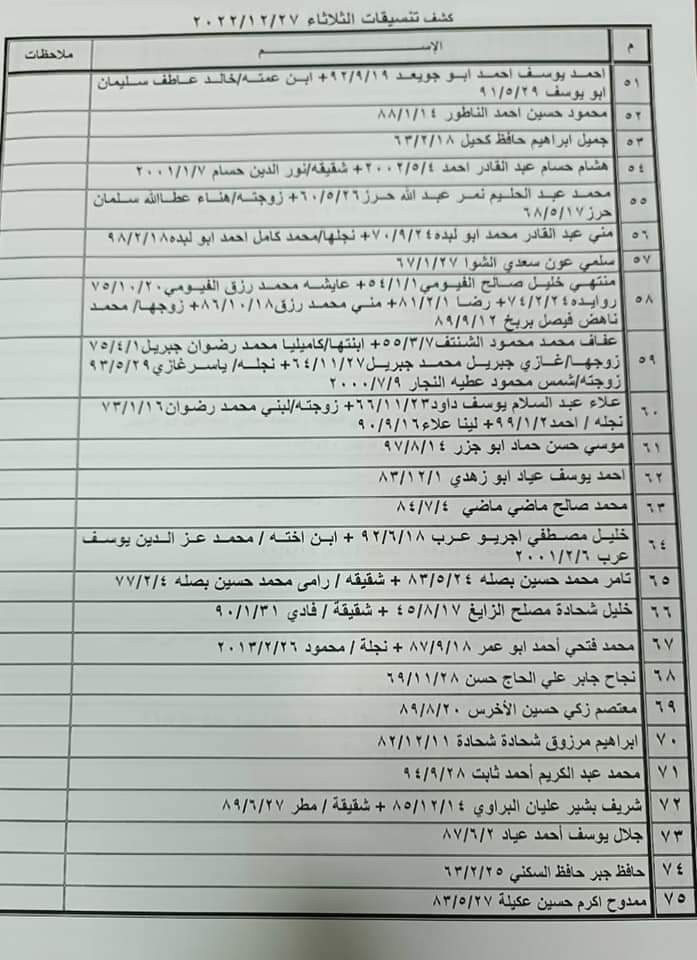 كشف تنسيقات الثلاثاء ٢٠٢٢/١٢/٢٧
م الإســـم ملاحظات
٥١ احمد يوسف احمد ابو جويعد ٩٢/٩/١٩+ ابن عمته/خالد عاطف سليمان
ابو يوسف ٩١/٥/٢٩
٥٢ محمود حسين احمد الناطور ٨٨/١/١٤
٥٣ جميل ابراهيم حافظ كحيل ٦٣/٢/١٨
٥٤ هشام حسام عبد القادر احمد ٢٠٠٢/٥/٤+ شقيقه/نور الدين حسام ٢٠٠١/١/٧
٥٥ محمد عبد الحليم نمر عبد الله حرز٦٠/٥/٢٦+ زوجته/هناء عطاالله سلمان
حرز٦٨/٥/١٧
٥٦ مني عبد القادر محمد ابو لبده٧٠/٩/٢٤+ نجلها/محمد كامل احمد ابو لبده٩٨/٢/١٨
٥٧ سلمي عون سعدي الشوا ٦٧/١/٢٧
٥٨ منتهي خليل صالح الفيومي٥٤/١/١+ عايشه محمد رزق الفيومي٧٥/١٠/٢٠
روايده٧٤/٢/٢٤+ رضا ٨١/٢/١+ مني محمد رزق٨٦/١٠/١٨+ زوجها/ محمد
ناهض فيصل بريخ ٨٩/٩/١٢
٥٩ عفاف محمد محمود الشنتف٥٥/٣/٧+ ابنتها/كاميليا محمد رضوان جبريل٧٥/٤/١
زوجها/غازي جبريل محمد جبريل٦٤/١١/٢٧+ نجله/ ياسر غازي٩٣/٥/٢٩
زوجته/شمس محمود عطيه النجار ٢٠٠٠/٧/٩
٦٠ علاء عبد السلام يوسف داود٦٦/١١/٢٣+ زوجته/لبني محمد رضوان٧٣/١/١٦
نجله / احمد٩٩/١/٢+ لينا علاء٩٠/٩/١٦
٦١ موسي حسن حماد ابو جزر ٩٧/٨/١٤
٦٢ احمد يوسف عياد ابو زهدي ٨٣/١٢/١
٦٣ محمد صالح ماضي ماضي ٨٤/٧/٤
٦٤ خليل مصطفي اجريو عرب ٩٢/٦/١٨ + ابن اخته / محمد عز الدين يوسف
عرب ٢٠٠١/٢/٦
٦٥ تامر محمد حسين بصله ٨٣/٥/٢٤ + شقيقه / رامى محمد حسين بصله ٧٧/٢/٤
٦٦ خليل شحادة مصلح الزايغ ٤٥/٨/١٧ + شقيقة / فادي ٩٠/١/٣١
٦٧ محمد فتحي أحمد ابو عمر ٨٧/٩/١٨ + نجلة / محمود ٢٠١٣/٢/٢٦
٦٨ نجاح جابر علي الحاج حسن ٦٩/١١/٢٨
٦٩ معتصم زكي حسين الأخرس ٨٩/٨/٢٠
٧٠ ابراهيم مرزوق شحادة شحادة ٨٢/١٢/١١
٧١ محمد عبد الكريم أحمد ثابت ٩٤/٩/٢٨
٧٢ شريف بشير عليان البراوي ٨٥/١٢/١٤ + شقيقة / مطر ٨٩/٦/٢٧
٧٣ جلال يوسف أحمد عياد ٨٧/٦/٢
٧٤ حافظ جبر حافظ السكني ٦٣/٢/٢٥
٧٥ ممدوح اكرم حسين عكيلة ٨٣/٥/٢٧